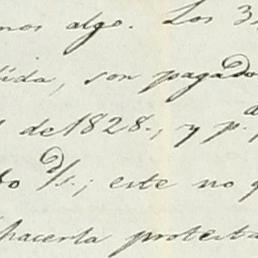 nos algo. Los 3
ida, son pagado
de 1828., y p.
d/s.; este no
hacerla protesta